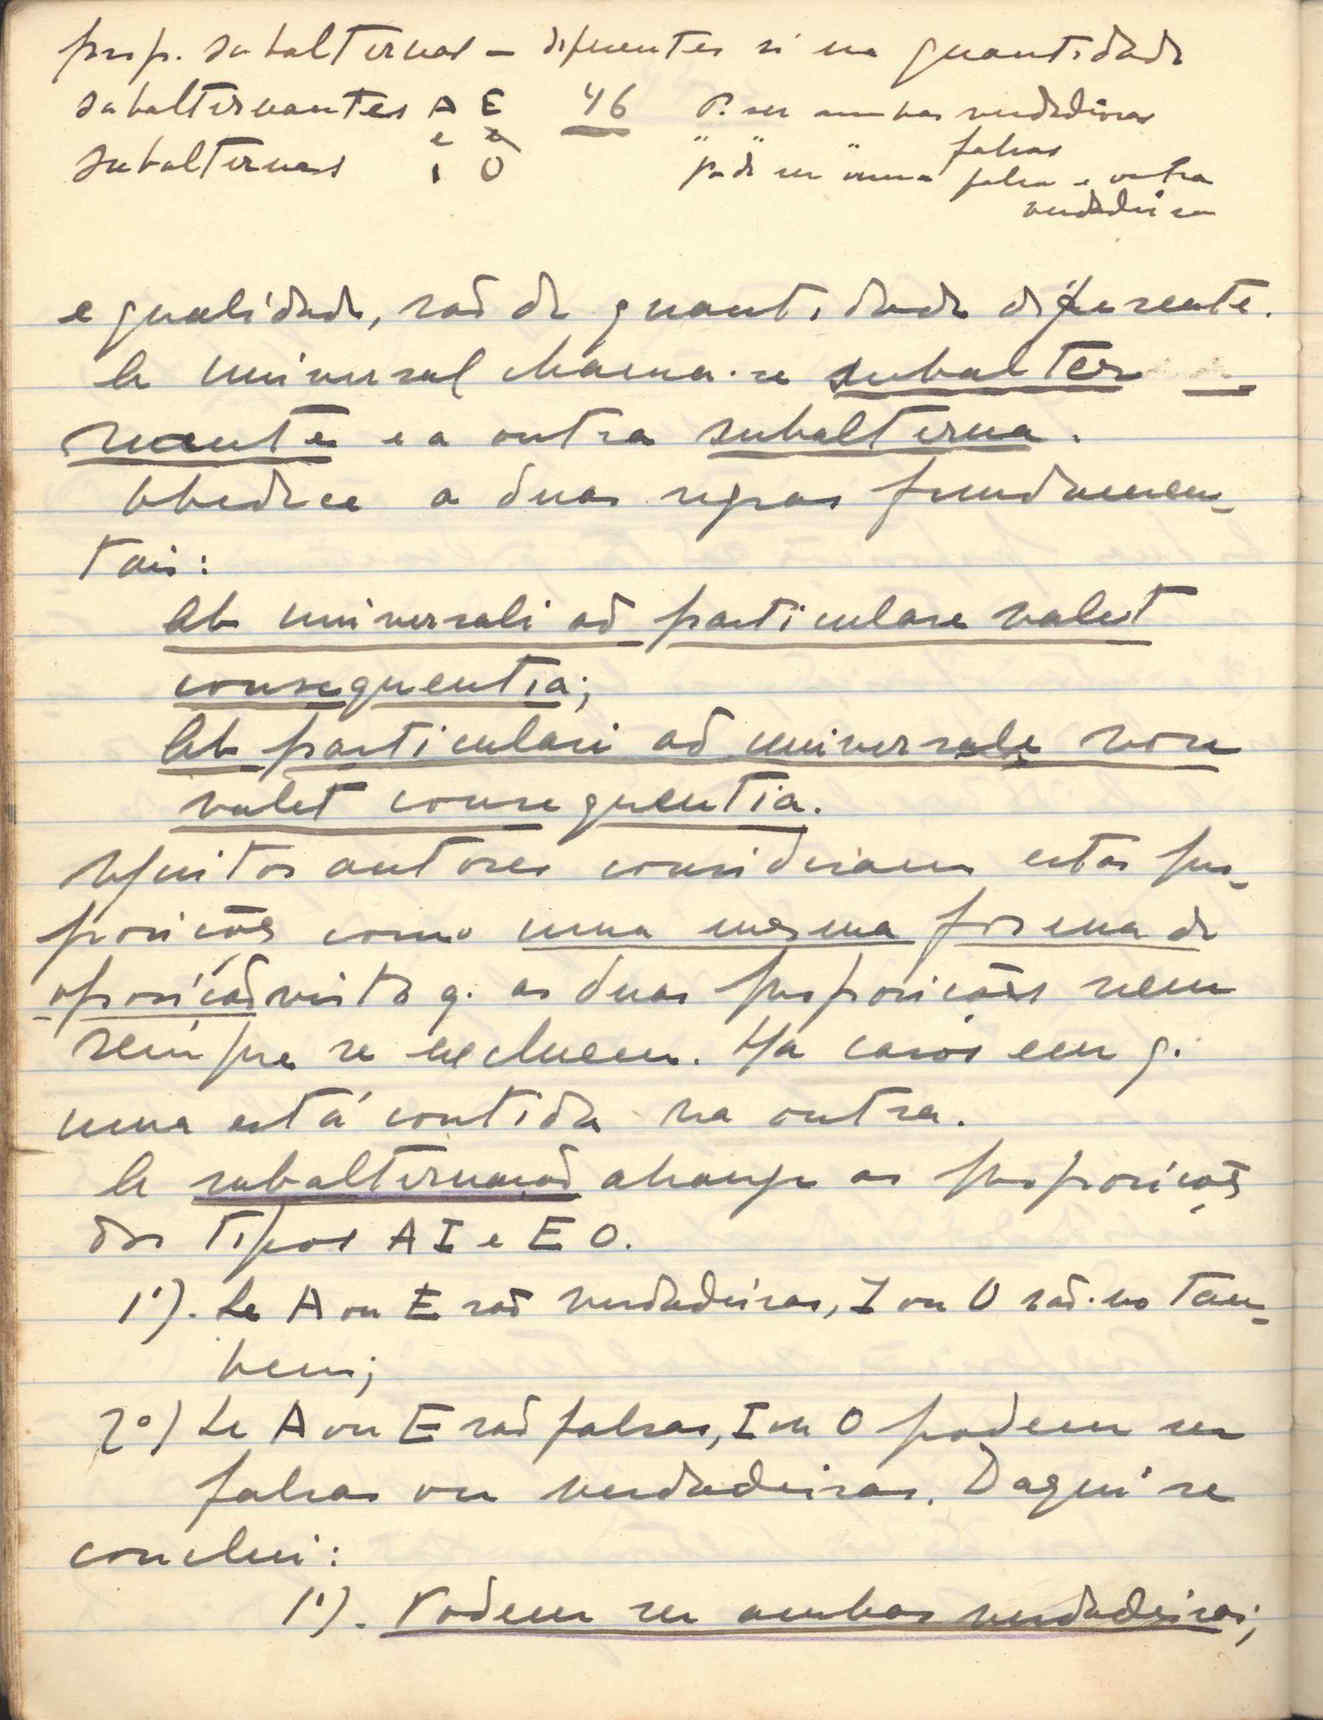 prop. subalternas – diferentes só na quantidade
subalternantes A E 46 P. ser ambas verdadeiras
e e " " " falsas
subalternas I O pode ser uma falsa e outra
verdadeira
e qualidade, são de quantidade diferente.
A universal chama-se subalter-
nante e a outra subalterna.
Obedece a duas regras fundamen-
tais:
Ab universali ad particulare valet
consequentia;
Ab particulari ad universale non
valet consequentia.
Muitos autores consideram estas pro-
posições como uma mesma forma de
oposição visto q. as duas proposições nem
sempre se excluem. Há casos em q.
uma está contida na outra.
A subalternação abrange as proposições
dos tipos A I e E O.
1º). Se A ou E são verdadeiras, I ou O são-no tam-
bem;
2º) Se A ou E são falsas, I ou O podem ser
falsas ou verdadeiras. Daqui se
conclui:
1º). Podem ser ambas verdadeiras;